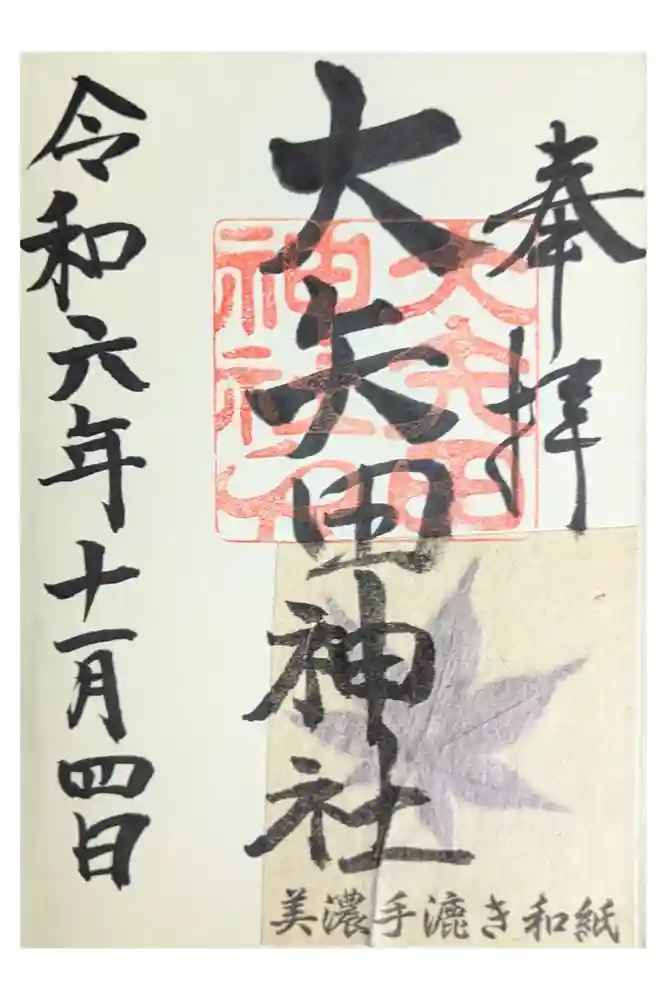 奉拝
大矢田神社
大矢田
神社印
令和六年十一月四日
美濃手漉き和紙